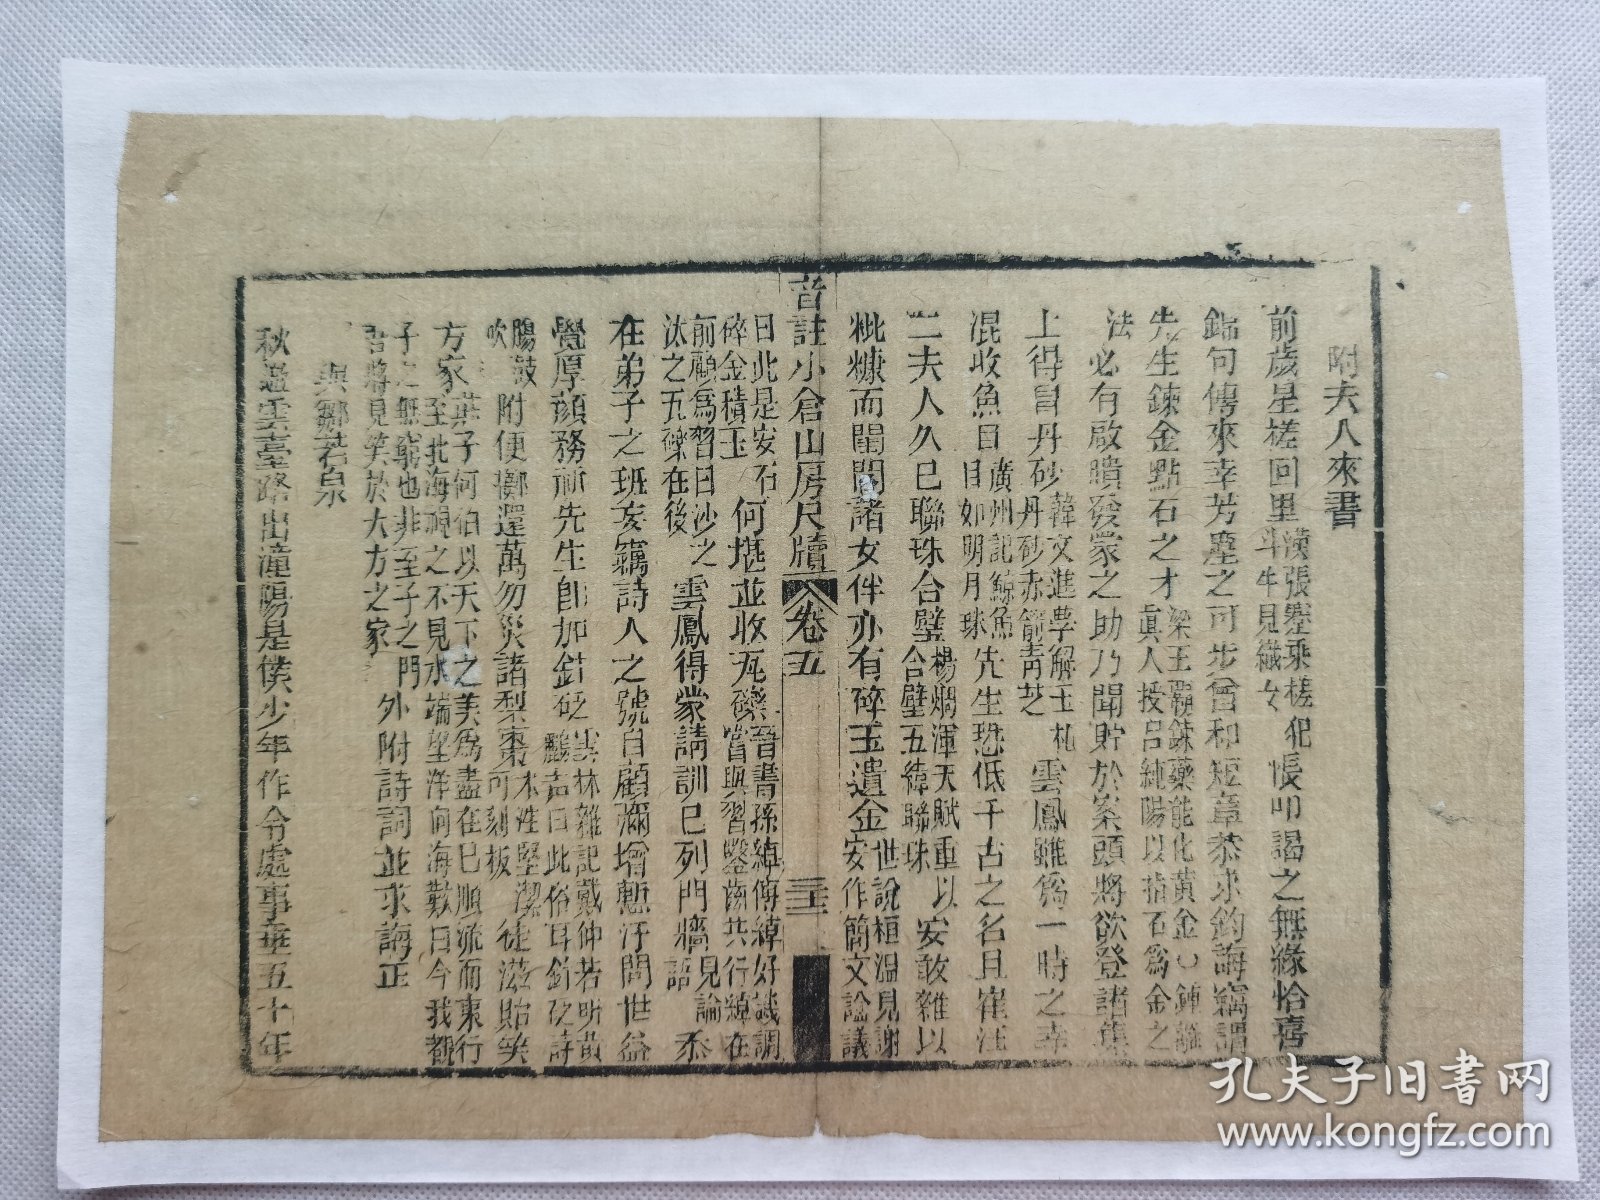 附夫人來書
前歲星槎回里漢張騫乘槎犯斗牛見織女悵叩謁之無緣恰喜
錦句傳來幸芳塵之可步曾和短章恭求鈞誨竊謂
先生鍊金點石之才梁王霸錬藥能化黃金○鍾離真人授呂純陽以指石為金之
法必有啟聵發蒙之助乃聞貯於案頭將欲登諸集
上得冒丹砂韓文進學解玉札丹砂赤箭青芝雲鳳雖為一時之幸
混收魚目廣州記鯨魚目如明月珠先生恐低千古之名且崔汪
二夫人久已聯珠合璧楊炯渾天賦重以合璧五緯聯珠安敢雜以
粃糠而閨閣諸女伴亦有碎玉遺金世說桓溫見謝安作簡文諡議
曰此是安石碎金積玉何堪並收瓦礫晉書孫綽傳綽好譏調嘗與習鑿齒共行綽在
前顧為習曰沙之汰之瓦礫在後雲鳳得蒙請訓已列門牆見論語忝
在弟子之班妄竊詩人之號自顧彌增慙汗閣世益
覺厚顏務祈先生即加針砭雲林雜記戴仲若聞黃鸝声曰此俗耳針砭詩
腸鼓吹附便擲還萬勿災諸梨棗木性堅潔可刻板徒滋貽笑
方家莊子何伯以天下之美為盡在已順流而東行至北海視之不見水端望洋向海歎曰今我覩
子之無窮也非至子之門吾將見笑於大方之家外附詩詞並求誨正
與鄒若泉
秋過雲臺路出潼陽是僕少年作令處事垂五十年
音註小倉山房尺牘
卷五
三十二
孔夫子旧书网
www.kongfz.com